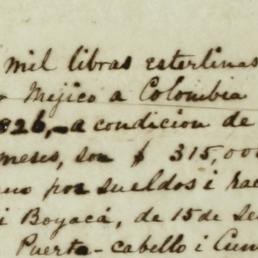 mil libras esterlinas
Mejico a Colombia
1826, - a condicion de
meses, son $ 315,000
por sueldos i rac
i Boyacá, de 15 de Se
Puerto-cabello i Cum